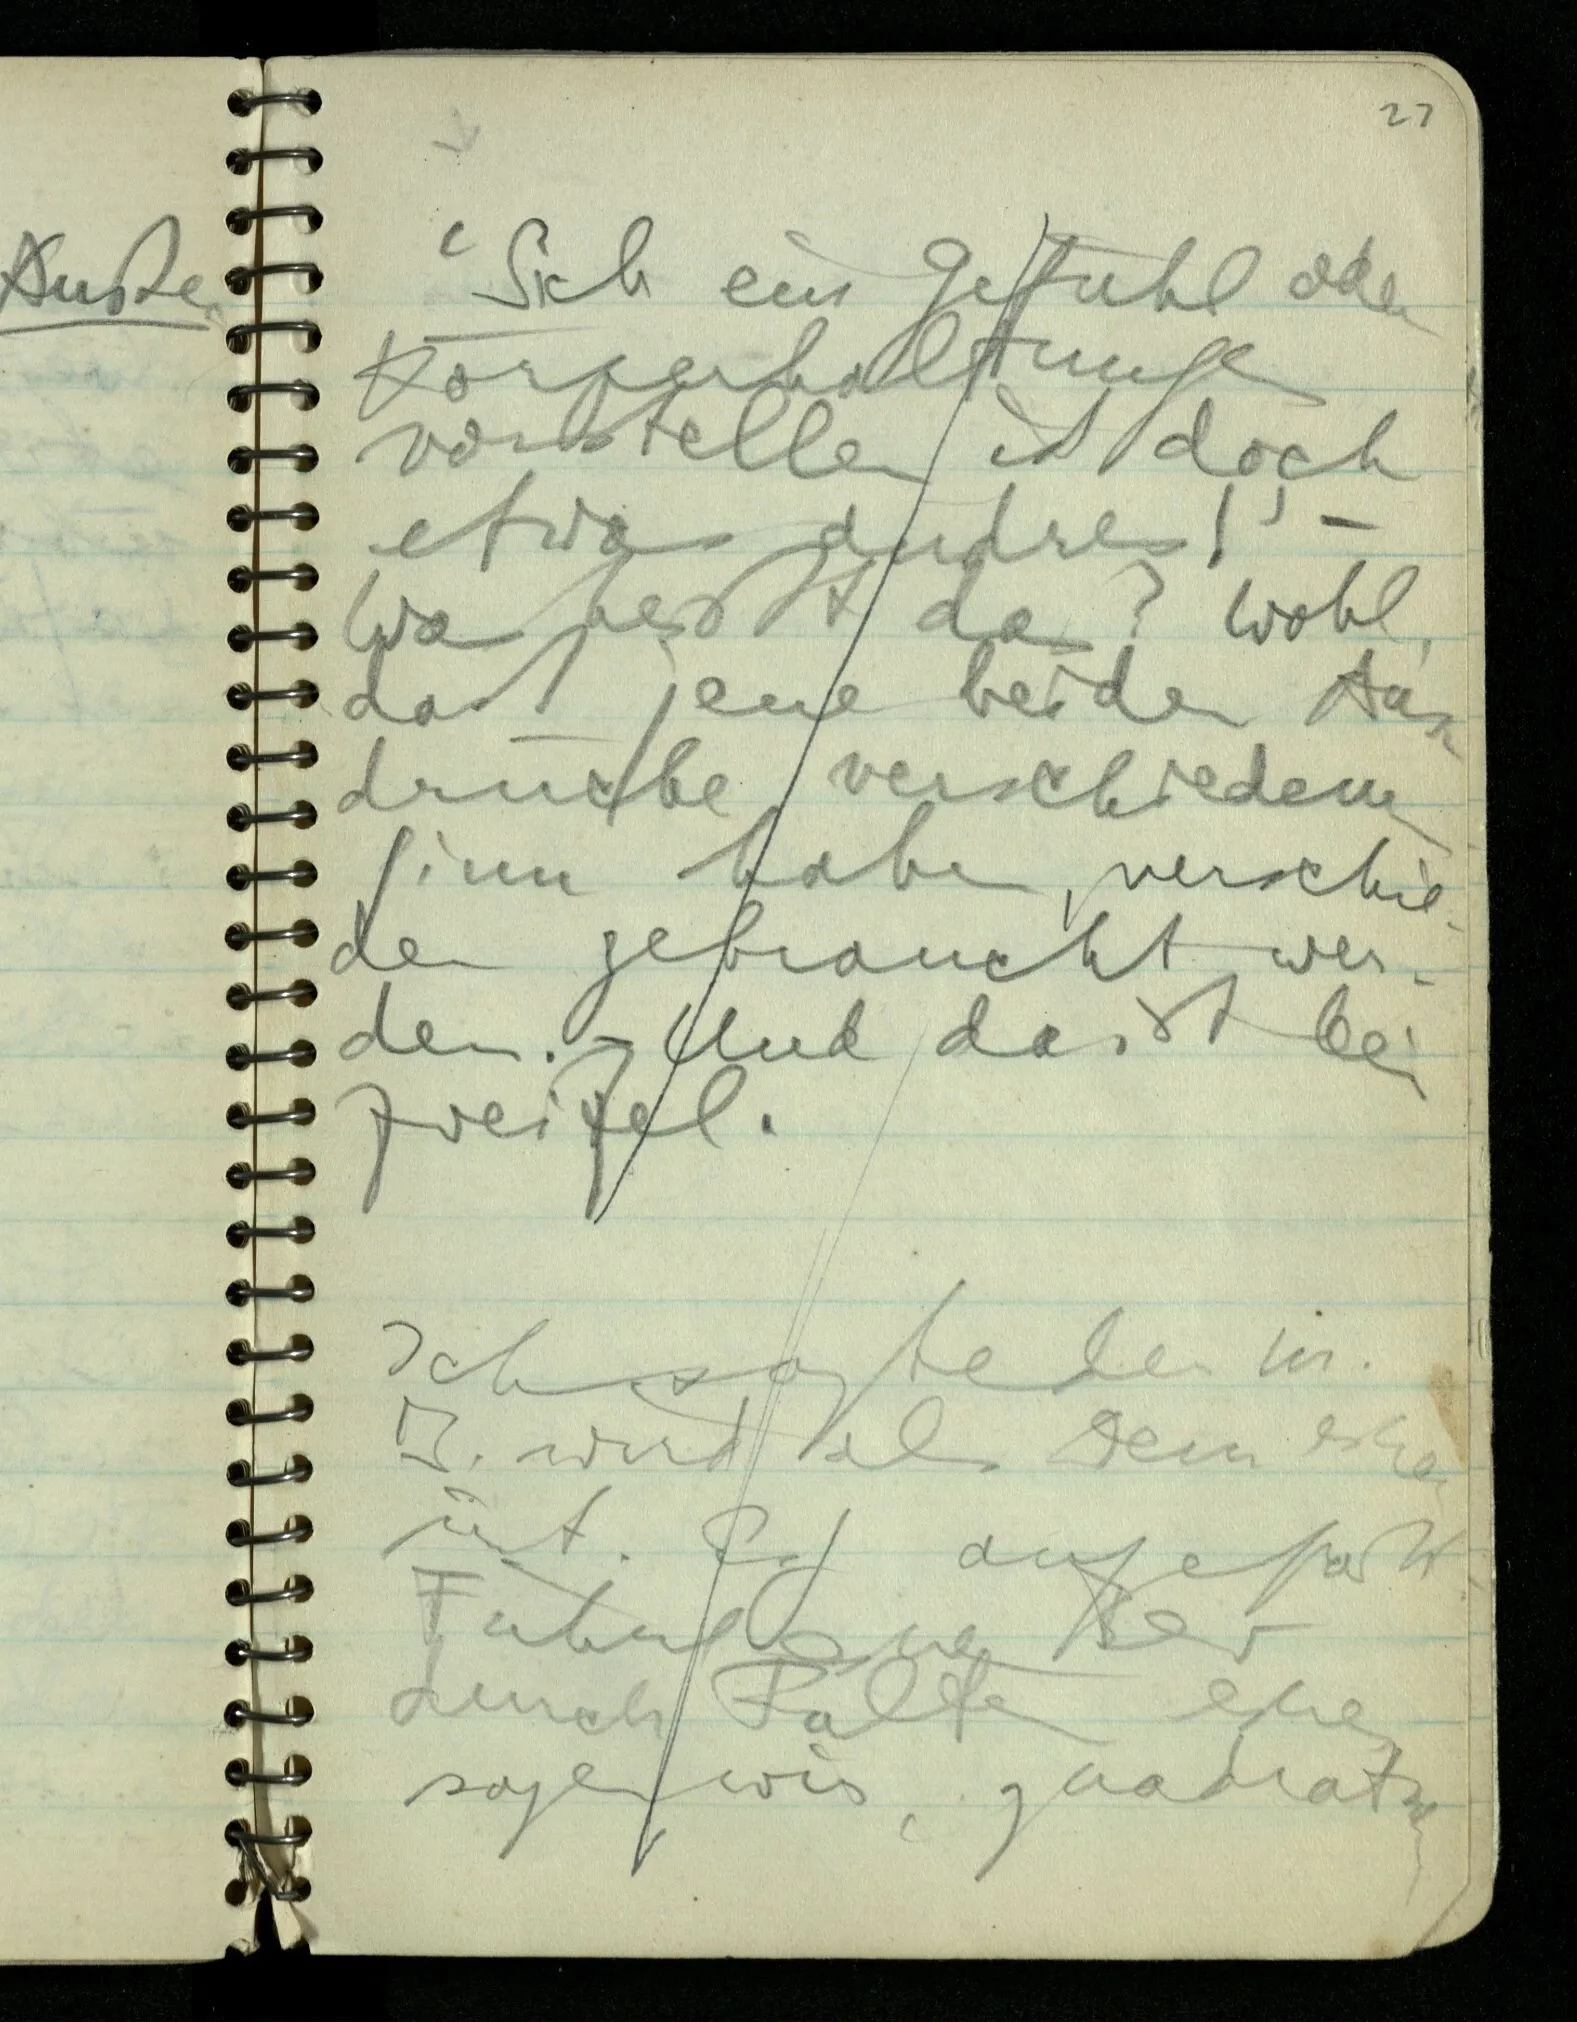 27
Auße
‘Sich ein Gefühl oder
Körperhaltunge
vorstellen ist doch
etwas andres!’ –
Was heißt das? Wohl,
daß jene beiden Aus
drücke verschiedenen
Sinn haben, verschie-
den gebraucht wer-
den. – Und das ist kein
Zweifel.
Ich sagte der
wird als dem
durch Falten
sagen wir, quadrat